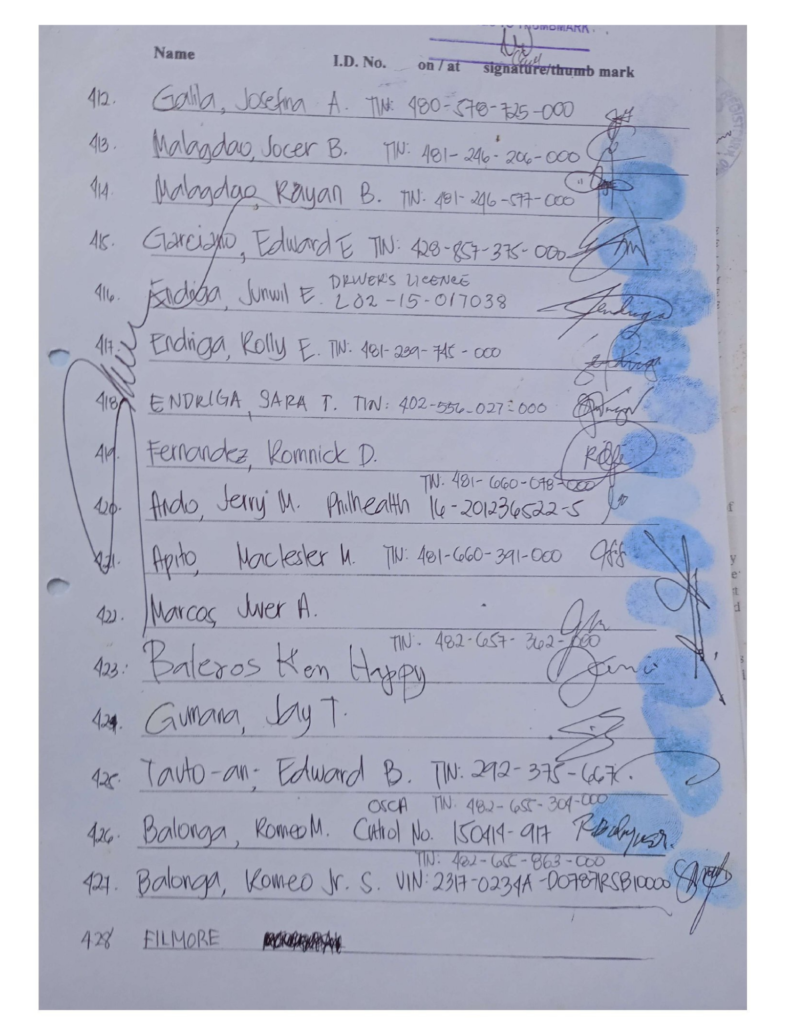 THUMBMARK
Name I.D. No. on / at signature/thumb mark
412. Galila, Josefina A. TIN: 480-578-725-000
413. Malagdao, Jocer B. TIN: 481-246-206-000
414. Malagdao, Rayan B. TIN. 481-246-577-000
415. Garciano, Edward E TIN: 428-857-375-000
DRIVER'S LICENCE
416. Endriga, Junwil E. L02-15-017038
417. Endriga, Rolly E. TIN: 481-239-745-000
418. ENDRIGA, SARA T. TIN: 402-556-027-000
419. Fernandez, Romnick D.
TIN. 481-660-078-000
420. Ando, Jerry M. Philhealth 16-201236522-5
421. Apito, Maclester M. TIN: 481-660-391-000
422. Marcos, Jwer A.
TIN. 482-657-362-000
423. Baleros Ken Happy
424. Gumana, Jay T.
425. Tauto-an, Edward B. TIN: 292-375-667.
OSCA TIN. 482-655-304-000
426. Balonga, Romeo M. Cntrol No. 150414-917
TIN: 482-655-863-000
427. Balonga, Romeo Jr. S. VIN: 2317-0234A-D0787RSB10000
428 FILMORE